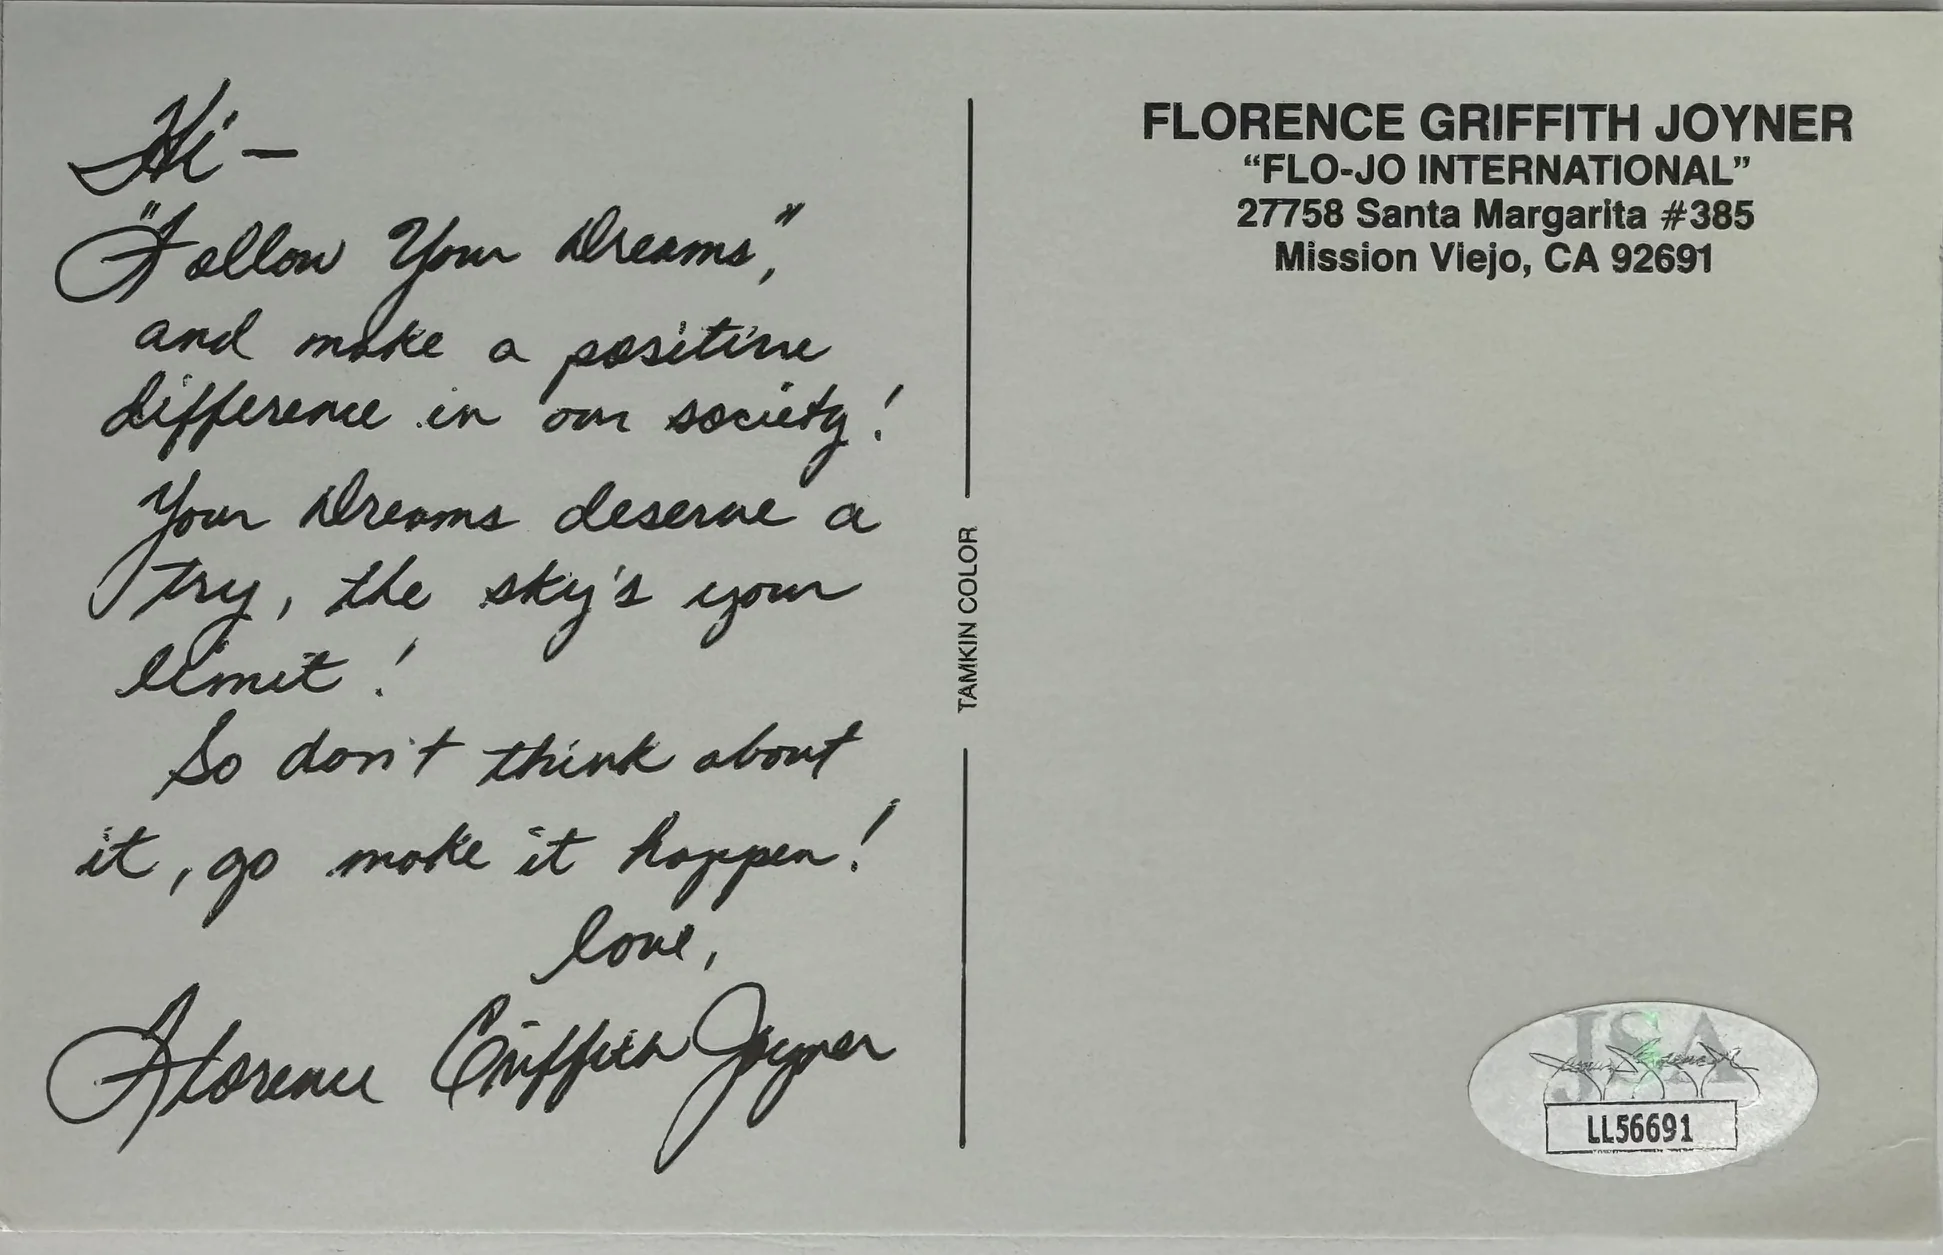 Hi –
"Follow Your Dreams",
and make a positive
difference in our society!
Your Dreams deserve a
try, the sky's your
limit!
So don't think about
it, go make it happen!
love,
Florence Griffith Joyner
TAMKIN COLOR
FLORENCE GRIFFITH JOYNER
“FLO-JO INTERNATIONAL”
27758 Santa Margarita #385
Mission Viejo, CA 92691
JSA
LL56691